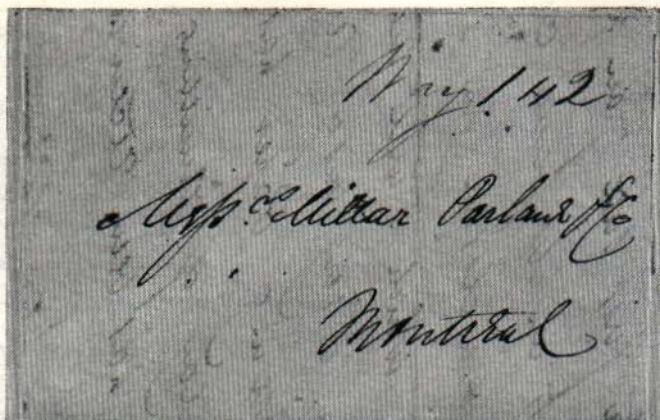 Way 1/ 42
Messrs Millar Parlane & Co
Montreal